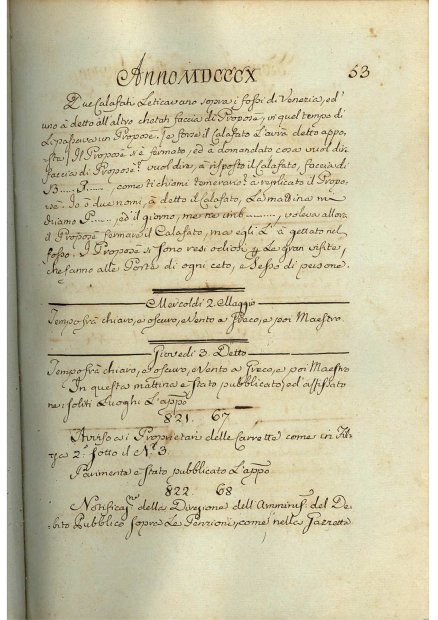 Anno MDCCCX 53
Due Calafati Leticavano sopra i fossi di Venezia, ed'
uno à detto all'altro chetati faccia di Propose, in quel tempo di
Lì passava un Propose. (e forse il Calafato L'avrà detto appo,
sta) Il Propose si è fermato, ed à domandato cosa vuol dir
faccia di Propose? vuol dire, à risposto il Calafato, faccia di
B..... P......, come ti chiami temerario? à replicato il Propo,
se. Io ò due nomi, à detto il Calafato, La mattina mi
P......, ed il giorno, me ne, voleva allora
il Propose fermare il Calafato, ma egli L'à gettato nel
fosso. I Proposi si sono resi odiosi p Le gran visite,
che fanno alle Porte di ogni ceto, e Sesso di persone.
Mercoldì 2. Maggio
Tempo frà chiaro, e oscuro, e Vento a Greco, e poi Maestro.
Giovedì 3. Detto
Tempo frà chiaro, e oscuro, e Vento a Greco, e poi Maestro
In questa mattina è stato pubblicato, ed affissato
ne' soliti Luoghi L'appo
821. 67
Avviso a i Proprietari delle Carrette come in Fil,
za 2.a sotto il N.o 3.
Parimente è stato pubblicato L'appo
822. 68
Notificaz.ne della Direzione dell'Amminis. del De,
bito Pubblico sopra Le Penzioni, come nella Gazzetta